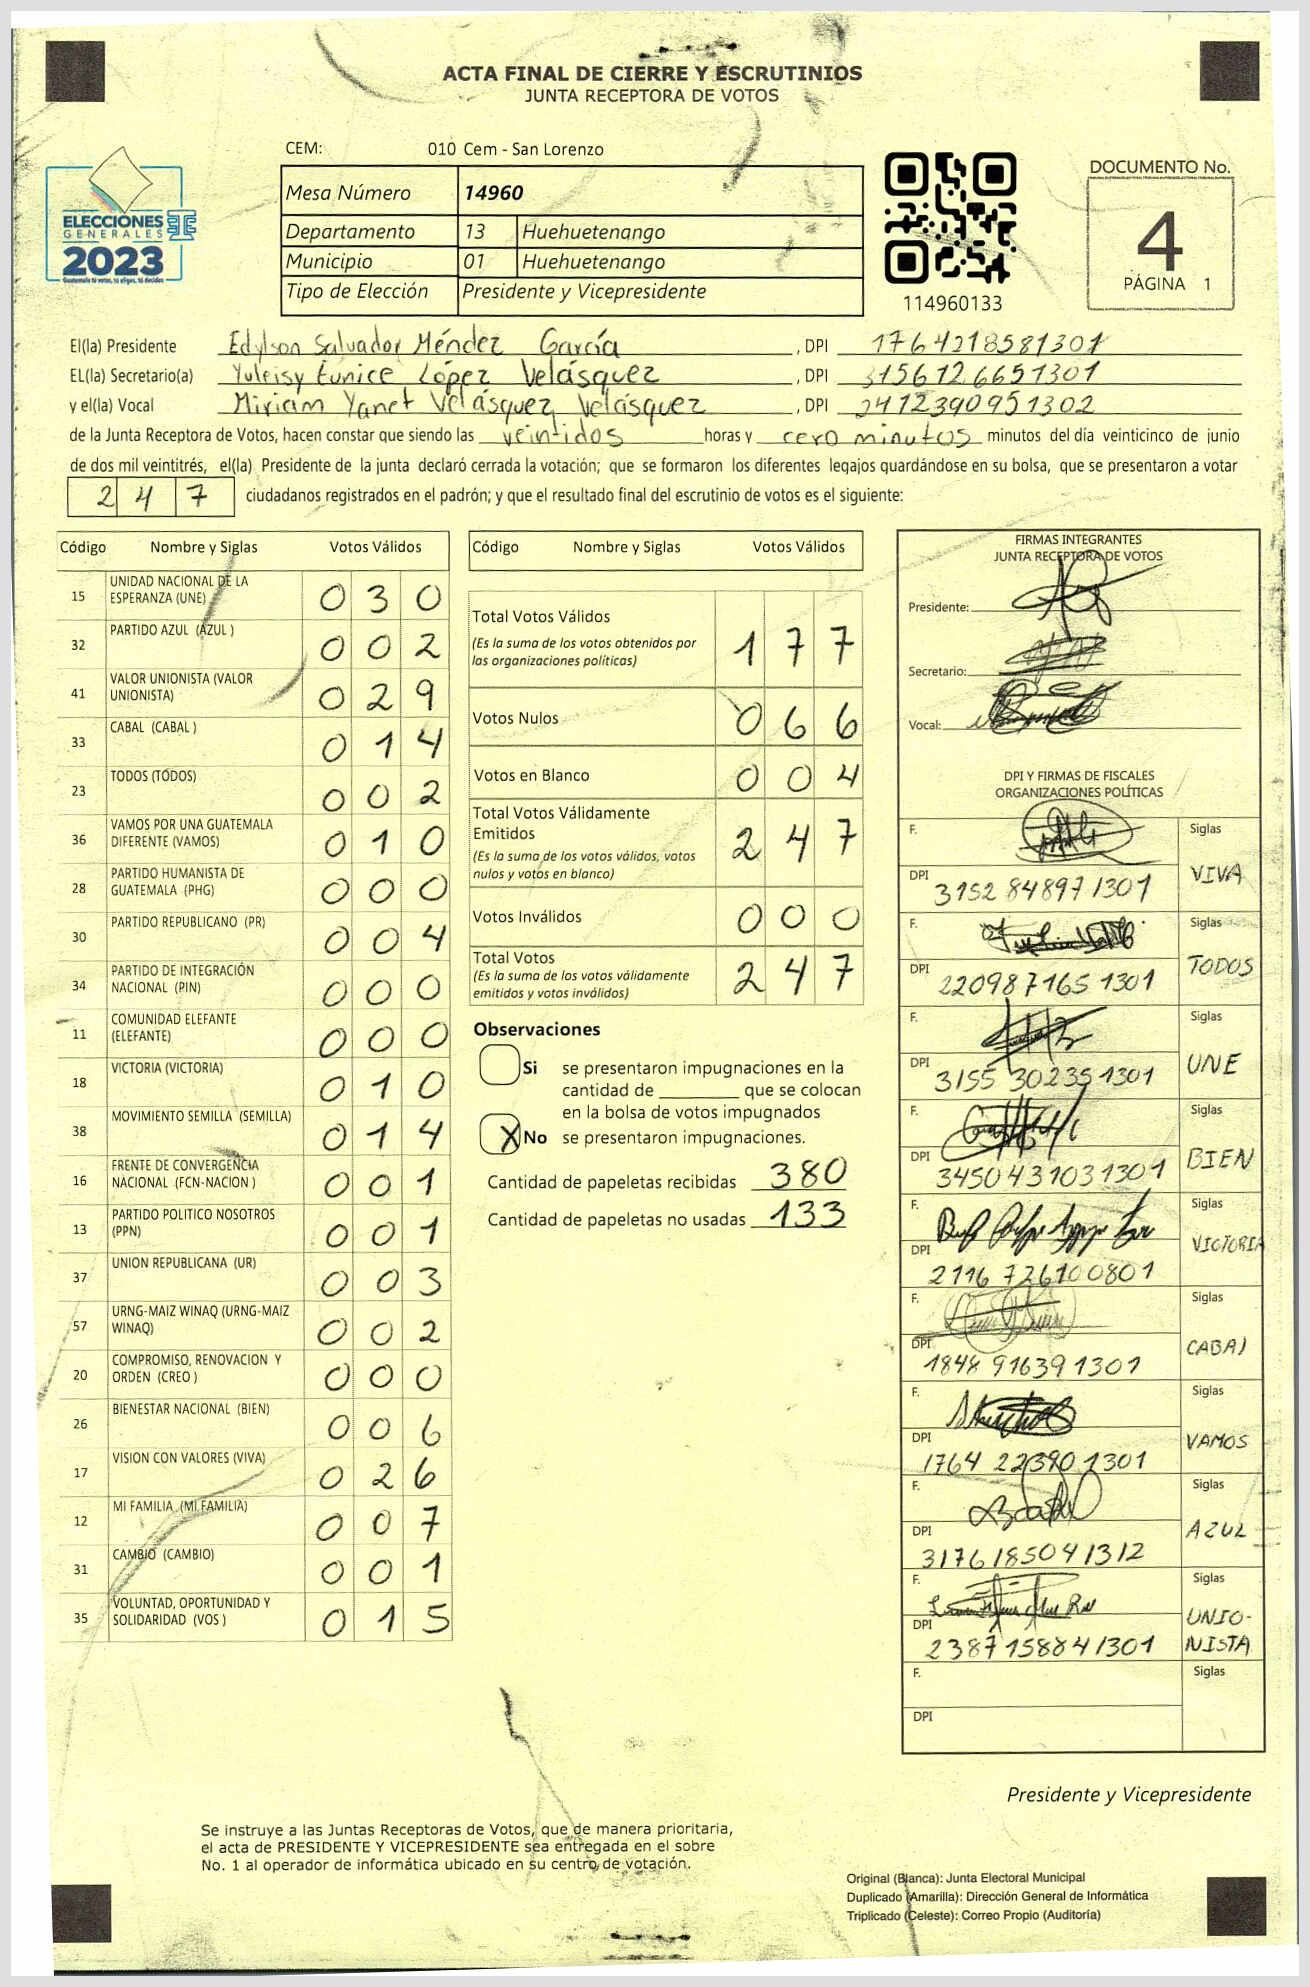 ACTA FINAL DE CIERRE Y ESCRUTINIOS
JUNTA RECEPTORA DE VOTOS
CEM: 010 Cem - San Lorenzo
Mesa Número 14960
Departamento 13 Huehuetenango
Municipio 01 Huehuetenango
Tipo de Elección Presidente y Vicepresidente
ELECCIONES
GENERALES
2023
Guatemala tú votas, tú eliges, tú decides
114960133
DOCUMENTO No.
4
PÁGINA 1
El(la) Presidente Edylson Salvador Méndez García, DPI 1764218581301
EL(la) Secretario(a) Yuleisy Eunice López Velásquez, DPI 3156126651301
y el(la) Vocal Miriam Yanet Velásquez Velásquez, DPI 2412390951302
de la Junta Receptora de Votos, hacen constar que siendo las veintidos horas y cero minutos minutos del día veinticinco de junio
de dos mil veintitrés, el(la) Presidente de la junta declaró cerrada la votación; que se formaron los diferentes legajos guardándose en su bolsa, que se presentaron a votar
247 ciudadanos registrados en el padrón; y que el resultado final del escrutinio de votos es el siguiente:
Código Nombre y Siglas Votos Válidos
15 UNIDAD NACIONAL DE LA ESPERANZA (UNE) 030
32 PARTIDO AZUL (AZUL ) 002
41 VALOR UNIONISTA (VALOR UNIONISTA) 029
33 CABAL (CABAL ) 014
23 TODOS (TODOS) 002
36 VAMOS POR UNA GUATEMALA DIFERENTE (VAMOS) 010
28 PARTIDO HUMANISTA DE GUATEMALA (PHG) 000
30 PARTIDO REPUBLICANO (PR) 004
34 PARTIDO DE INTEGRACIÓN NACIONAL (PIN) 000
11 COMUNIDAD ELEFANTE (ELEFANTE) 000
18 VICTORIA (VICTORIA) 010
38 MOVIMIENTO SEMILLA (SEMILLA) 014
16 FRENTE DE CONVERGENCIA NACIONAL (FCN-NACION ) 001
13 PARTIDO POLITICO NOSOTROS (PPN) 001
37 UNION REPUBLICANA (UR) 003
57 URNG-MAIZ WINAQ (URNG-MAIZ WINAQ) 002
20 COMPROMISO, RENOVACION Y ORDEN (CREO ) 000
26 BIENESTAR NACIONAL (BIEN) 006
17 VISION CON VALORES (VIVA) 026
12 MI FAMILIA (MI FAMILIA) 007
31 CAMBIO (CAMBIO) 001
35 VOLUNTAD, OPORTUNIDAD Y SOLIDARIDAD (VOS ) 015
Código Nombre y Siglas Votos Válidos
Total Votos Válidos 177
(Es la suma de los votos obtenidos por
las organizaciones políticas)
Votos Nulos 066
Votos en Blanco 004
Total Votos Válidamente
Emitidos 247
(Es la suma de los votos válidos, votos
nulos y votos en blanco)
Votos Inválidos 000
Total Votos 247
(Es la suma de los votos válidamente
emitidos y votos inválidos)
Observaciones
Si se presentaron impugnaciones en la
cantidad de ________ que se colocan
en la bolsa de votos impugnados
X No se presentaron impugnaciones.
Cantidad de papeletas recibidas 380
Cantidad de papeletas no usadas 133
FIRMAS INTEGRANTES
JUNTA RECEPTORA DE VOTOS
Presidente:
Secretario:
Vocal:
DPI Y FIRMAS DE FISCALES
ORGANIZACIONES POLÍTICAS
F. Siglas
DPI 3152 84897 1301 VIVA
F. Siglas
DPI 220987165 1301 TODOS
F. Siglas
DPI 3155 30235 1301 UNE
F. Siglas
DPI 3450431031301 BIEN
F. Siglas
DPI 2116 726100801 VICTORIA
F. Siglas
DPI 1848 91639 1301 CABAl
F. Siglas
DPI 1764 22390 1301 VAMOS
F. Siglas
DPI 3176185041312 AZUL
F. Siglas
DPI 2387158841301 UNIO-
NISTA
F. Siglas
DPI
Presidente y Vicepresidente
Se instruye a las Juntas Receptoras de Votos, que de manera prioritaria,
el acta de PRESIDENTE Y VICEPRESIDENTE sea entregada en el sobre
No. 1 al operador de informática ubicado en su centro de votación.
Original (Blanca): Junta Electoral Municipal
Duplicado (Amarilla): Dirección General de Informática
Triplicado (Celeste): Correo Propio (Auditoría)